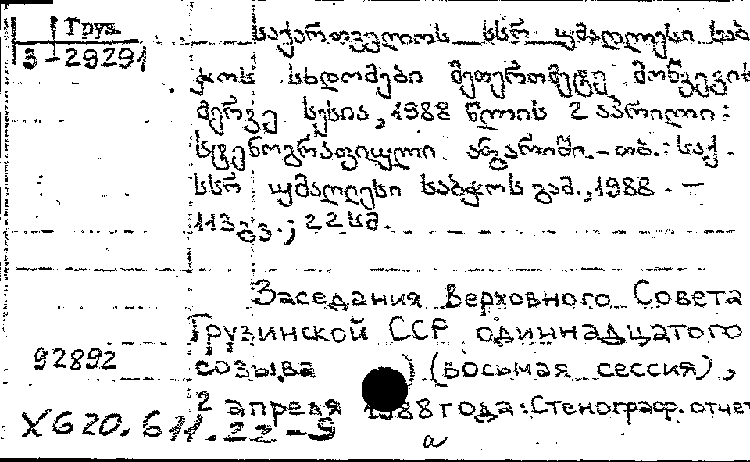 Груз.
3-29291
საქართველოს სსრ უმაღლესი საბ
ჭოს სხდომები მეთერთმეტე მოწვევის
მერვე სესია, 1988 წლის 2 აპრილი:
სტენოგრაფიული ანგარიში.-თბ.: საქ.
სსრ უმაღლესი საბჭოს გამ., 1988. -
113გვ.; 22სმ.
Заседания Верховного Совета
Грузинской ССР одиннадцатого
92892
созыва ) (восьмая сессия),
2 апреля 1988 года: Стенограф. отчет
X620.611.22-9
a